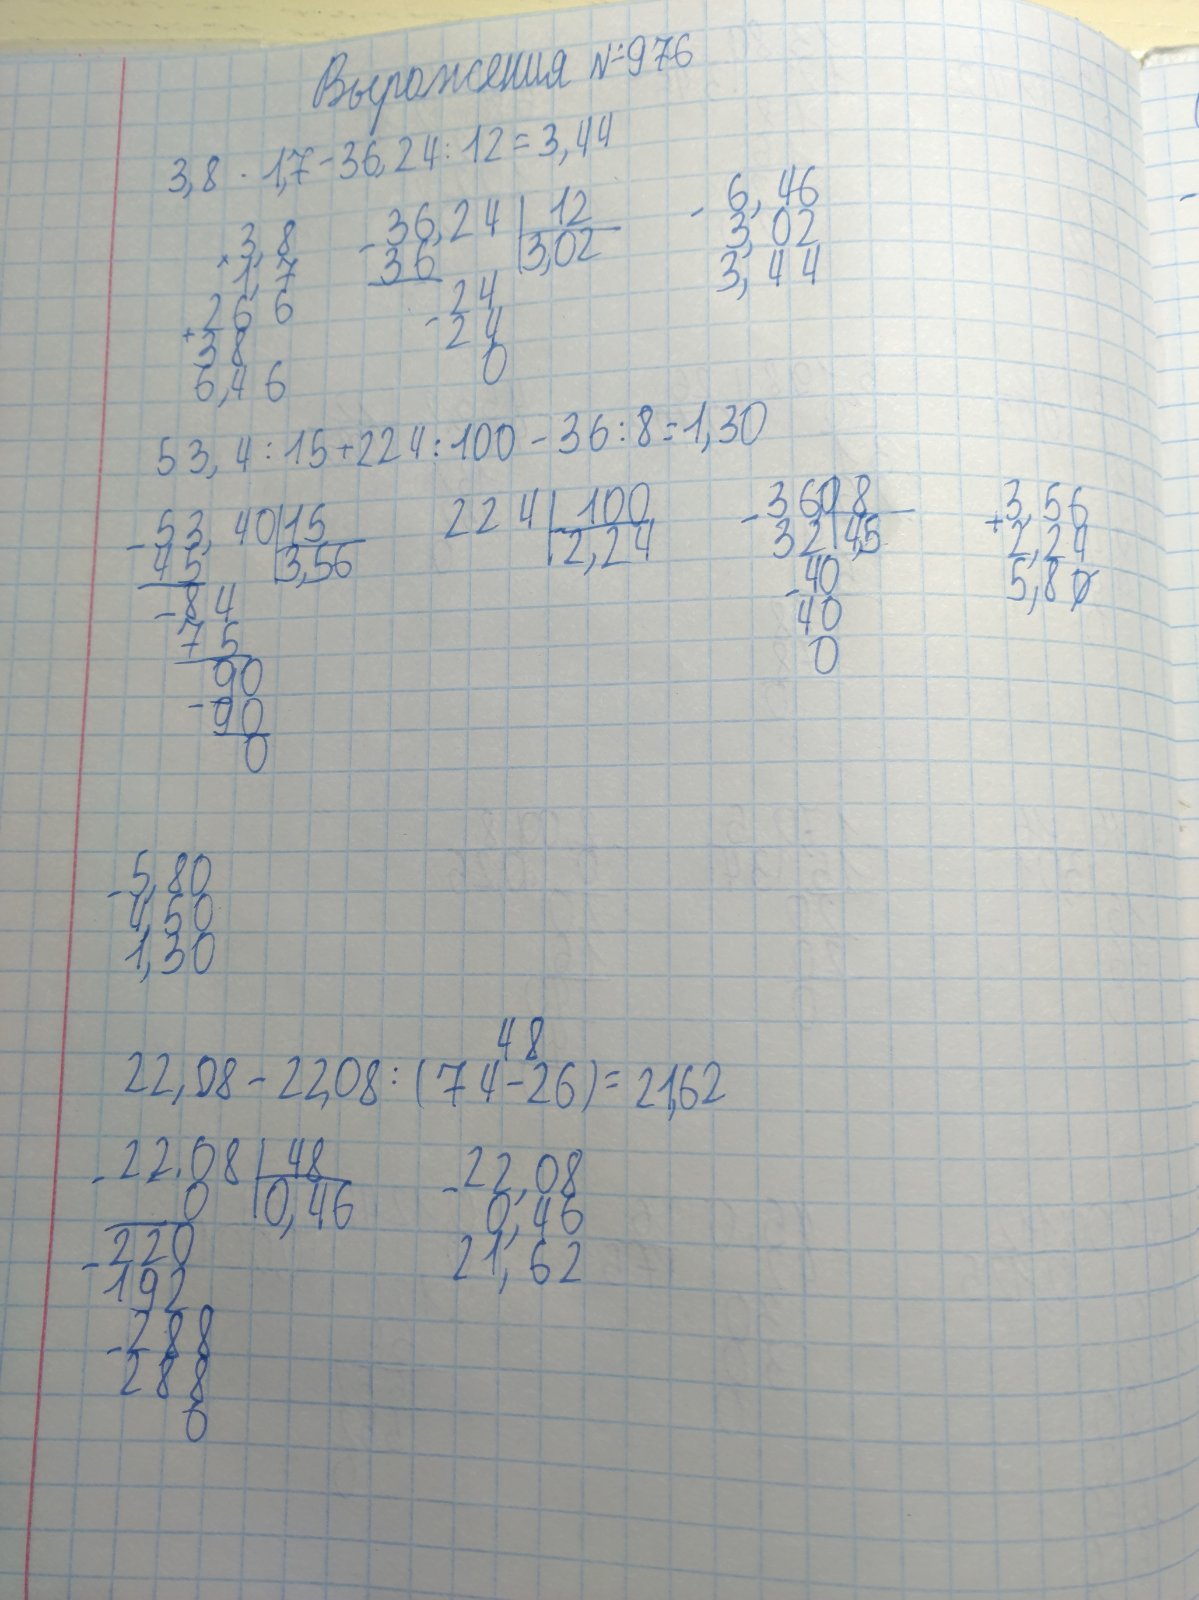 Выражения №976
3,8 · 1,7 - 36,24 : 12 = 3,44
× 3,8
1,7
+ 26 6
38
6,46
- 36,24 | 12
36 | 3,02
- 24
24
0
- 6,46
3,02
3,44
53,4 : 15 + 224 : 100 - 36 : 8 = 1,30
- 53,40 | 15
45 | 3,56
- 84
75
- 90
90
0
224 | 100
2,24
- 360 | 8
32 | 4,5
- 40
40
0
+ 3,56
2,24
5,80
- 5,80
4,50
1,30
48
22,08 - 22,08 : (74 - 26) = 21,62
- 22,08 | 48
0 | 0,46
- 220
192
- 288
288
0
- 22,08
0,46
21,62